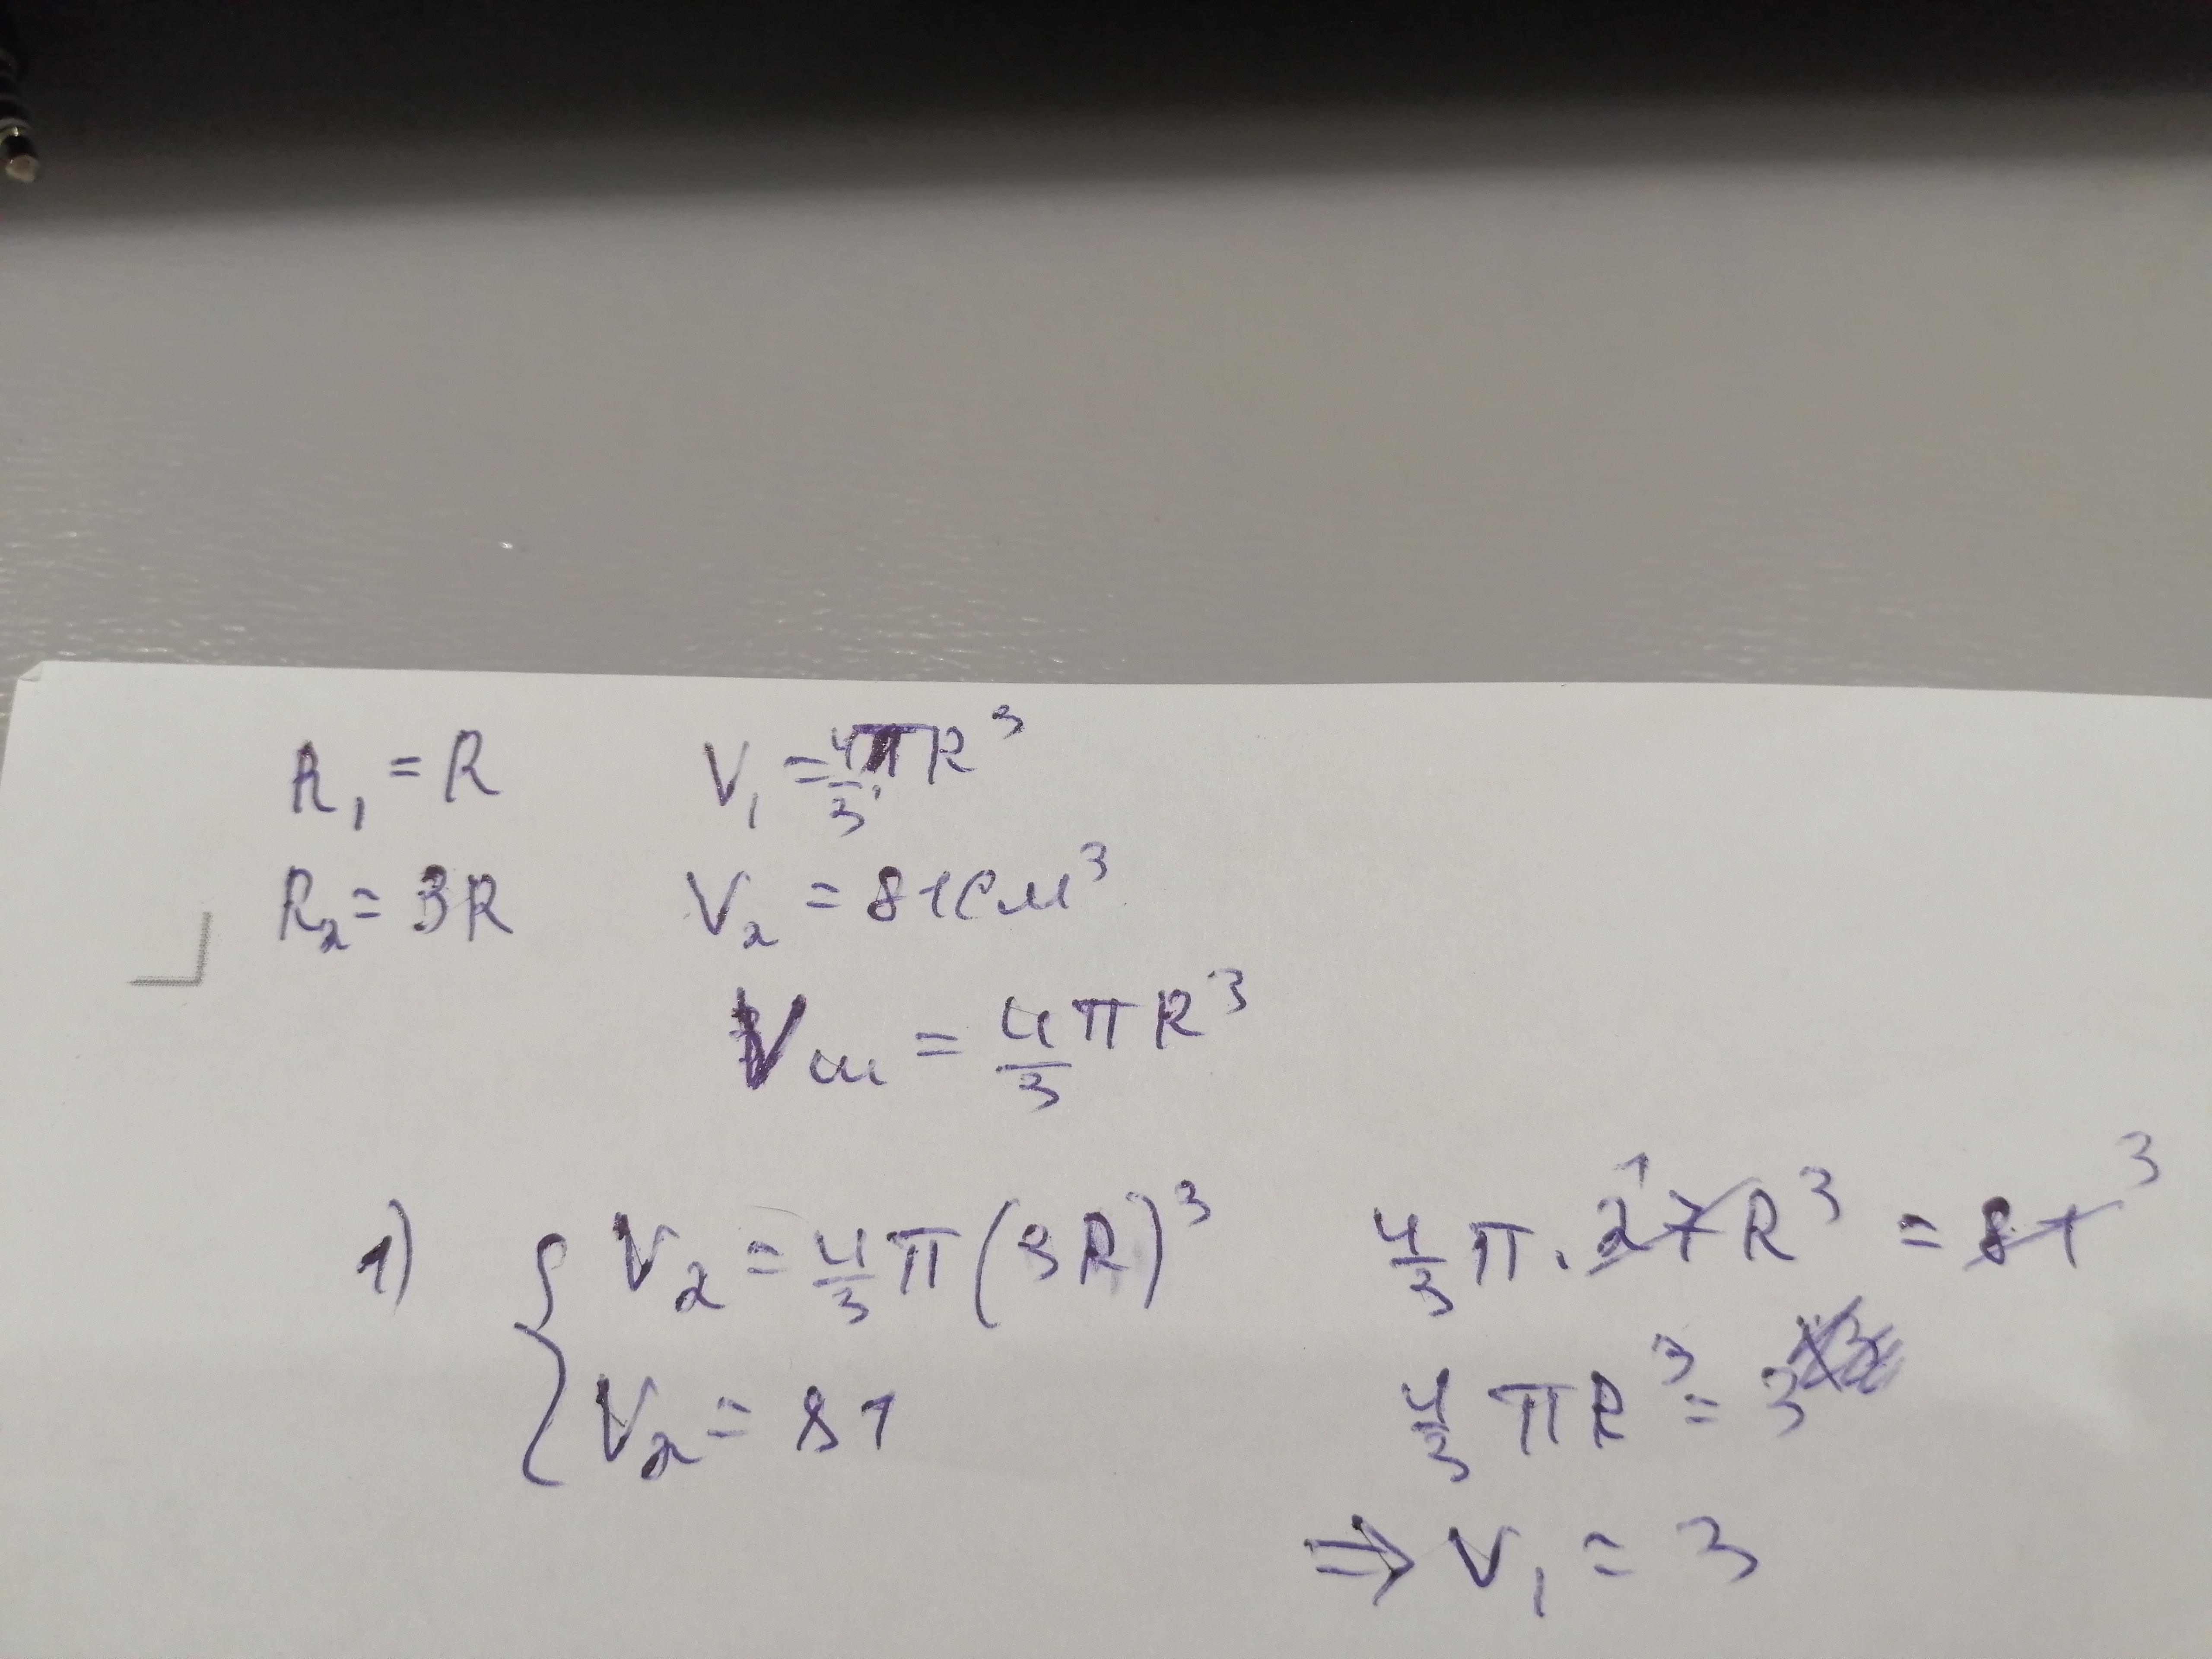 R₁ = R   V₁ = 4/3 πR³
R₂ = 3R   V₂ = 81см³
Vш = 4/3 πR³
1) { V₂ = 4/3 π(3R)³   4/3 π · 27¹ R³ = 81³
V₂ = 81   4/3 πR³ = 3
⇒ V₁ = 3